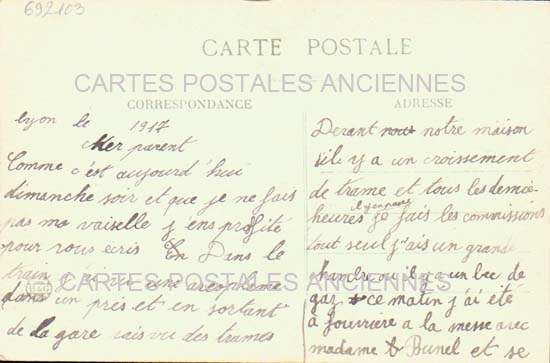 692103
CARTE POSTALE
CARTES POSTALES ANCIENNES
CORRESPONDANCE
lyon le 1917
Cher parent
Comme c'est aujourd'hui
dimanche soir et que je ne fais
pas ma vaiselle j'ens profite
pour vous écris En Dans le
train j'ai vu une aeoplame
dans un près et en sortant
de la gare vais vu des trames
ADRESSE
Devant nous notre maison
il y a un croissement
de trame et tous les demie
heures il y en passe
je fais les commissions
tout seul j'ais un grande
chambre ou il y a un bec de
gaz ce matin j'ai été
à fourvière a la messe avec
madame Bunel et se
CARTES POSTALES ANCIENNES